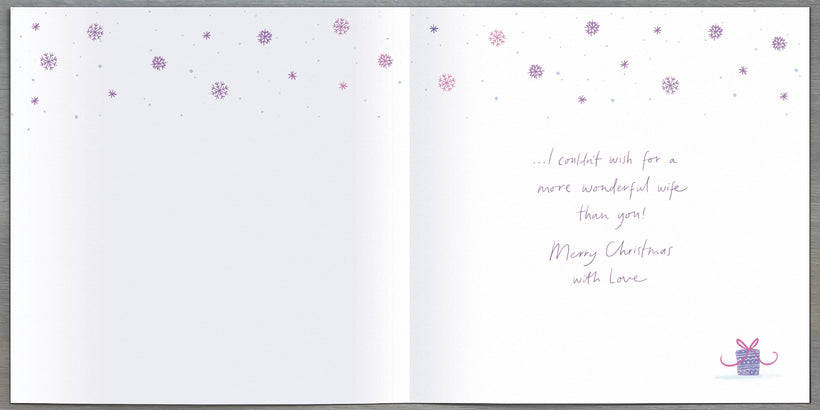 ...I couldn't wish for a
more wonderful wife
than you!
Merry Christmas
with Love